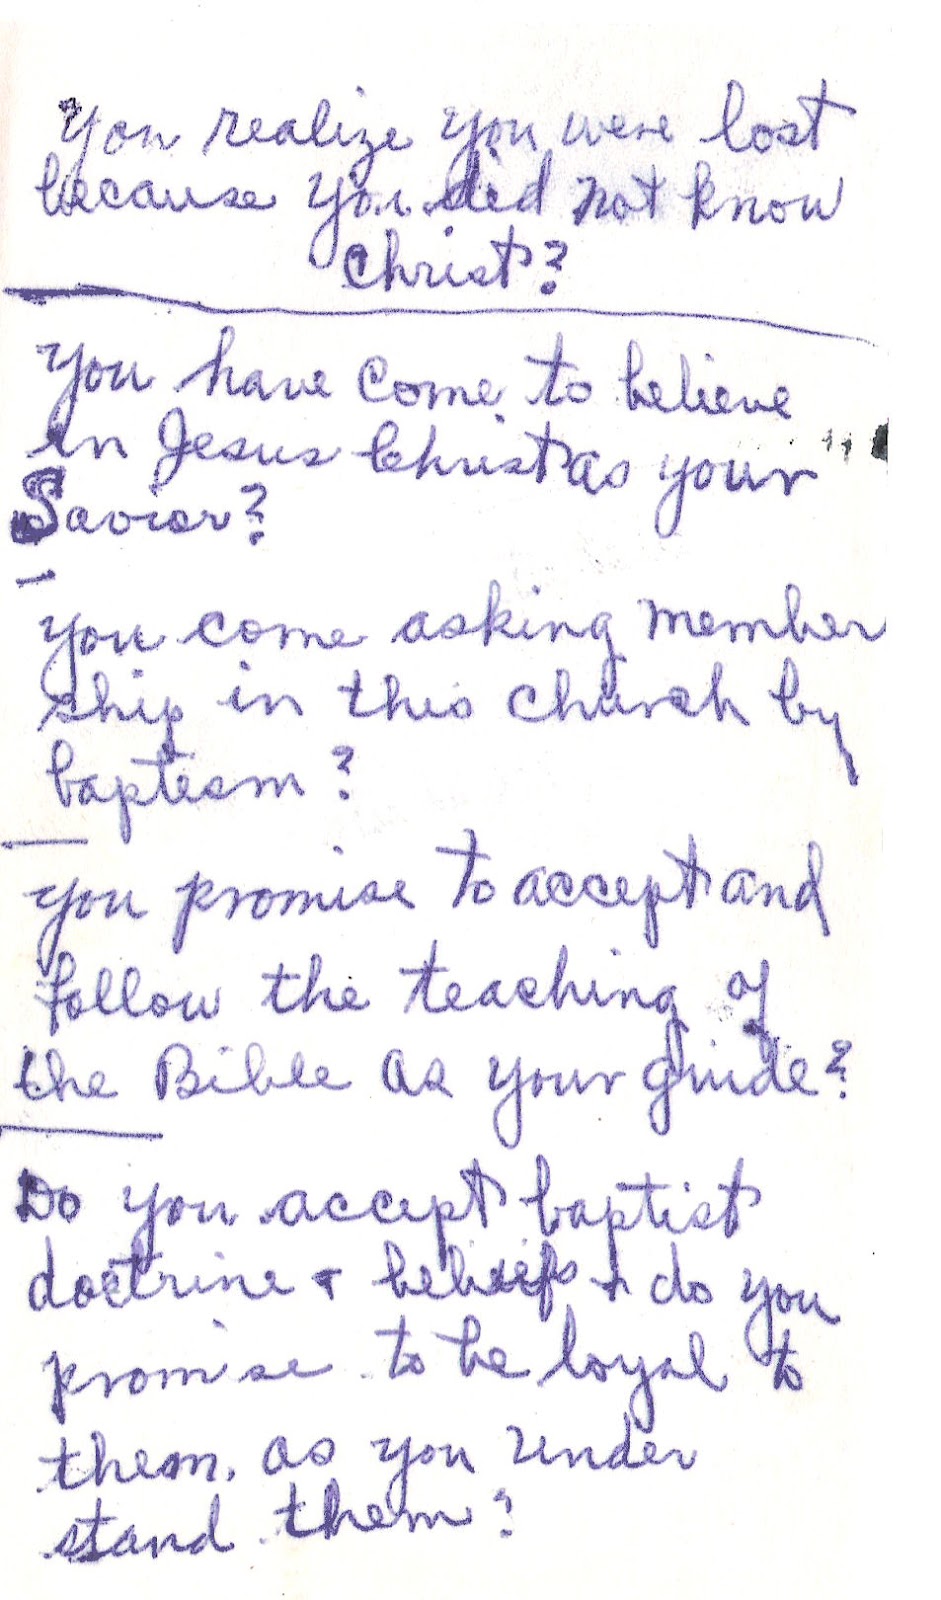 You realize you were lost
because you did not know
Christ?
You have come to believe
in Jesus Christ as your
Savior?
You come asking member
ship in this church by
baptism?
You promise to accept and
follow the teaching of
the Bible as your guide?
Do you accept baptist
doctrine + beliefs + do you
promise to be loyal to
them. as you under
stand them?